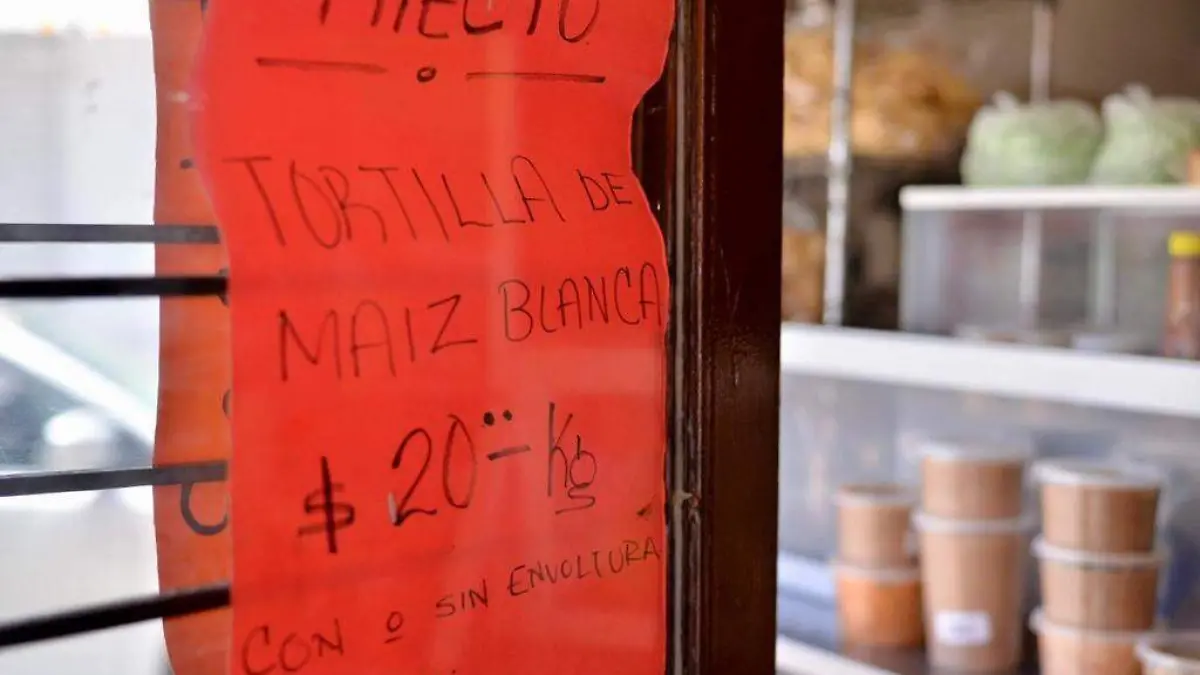 TORTILLA DE
MAIZ BLANCA
$ 20.. Kg
CON o SIN ENVOLTURA